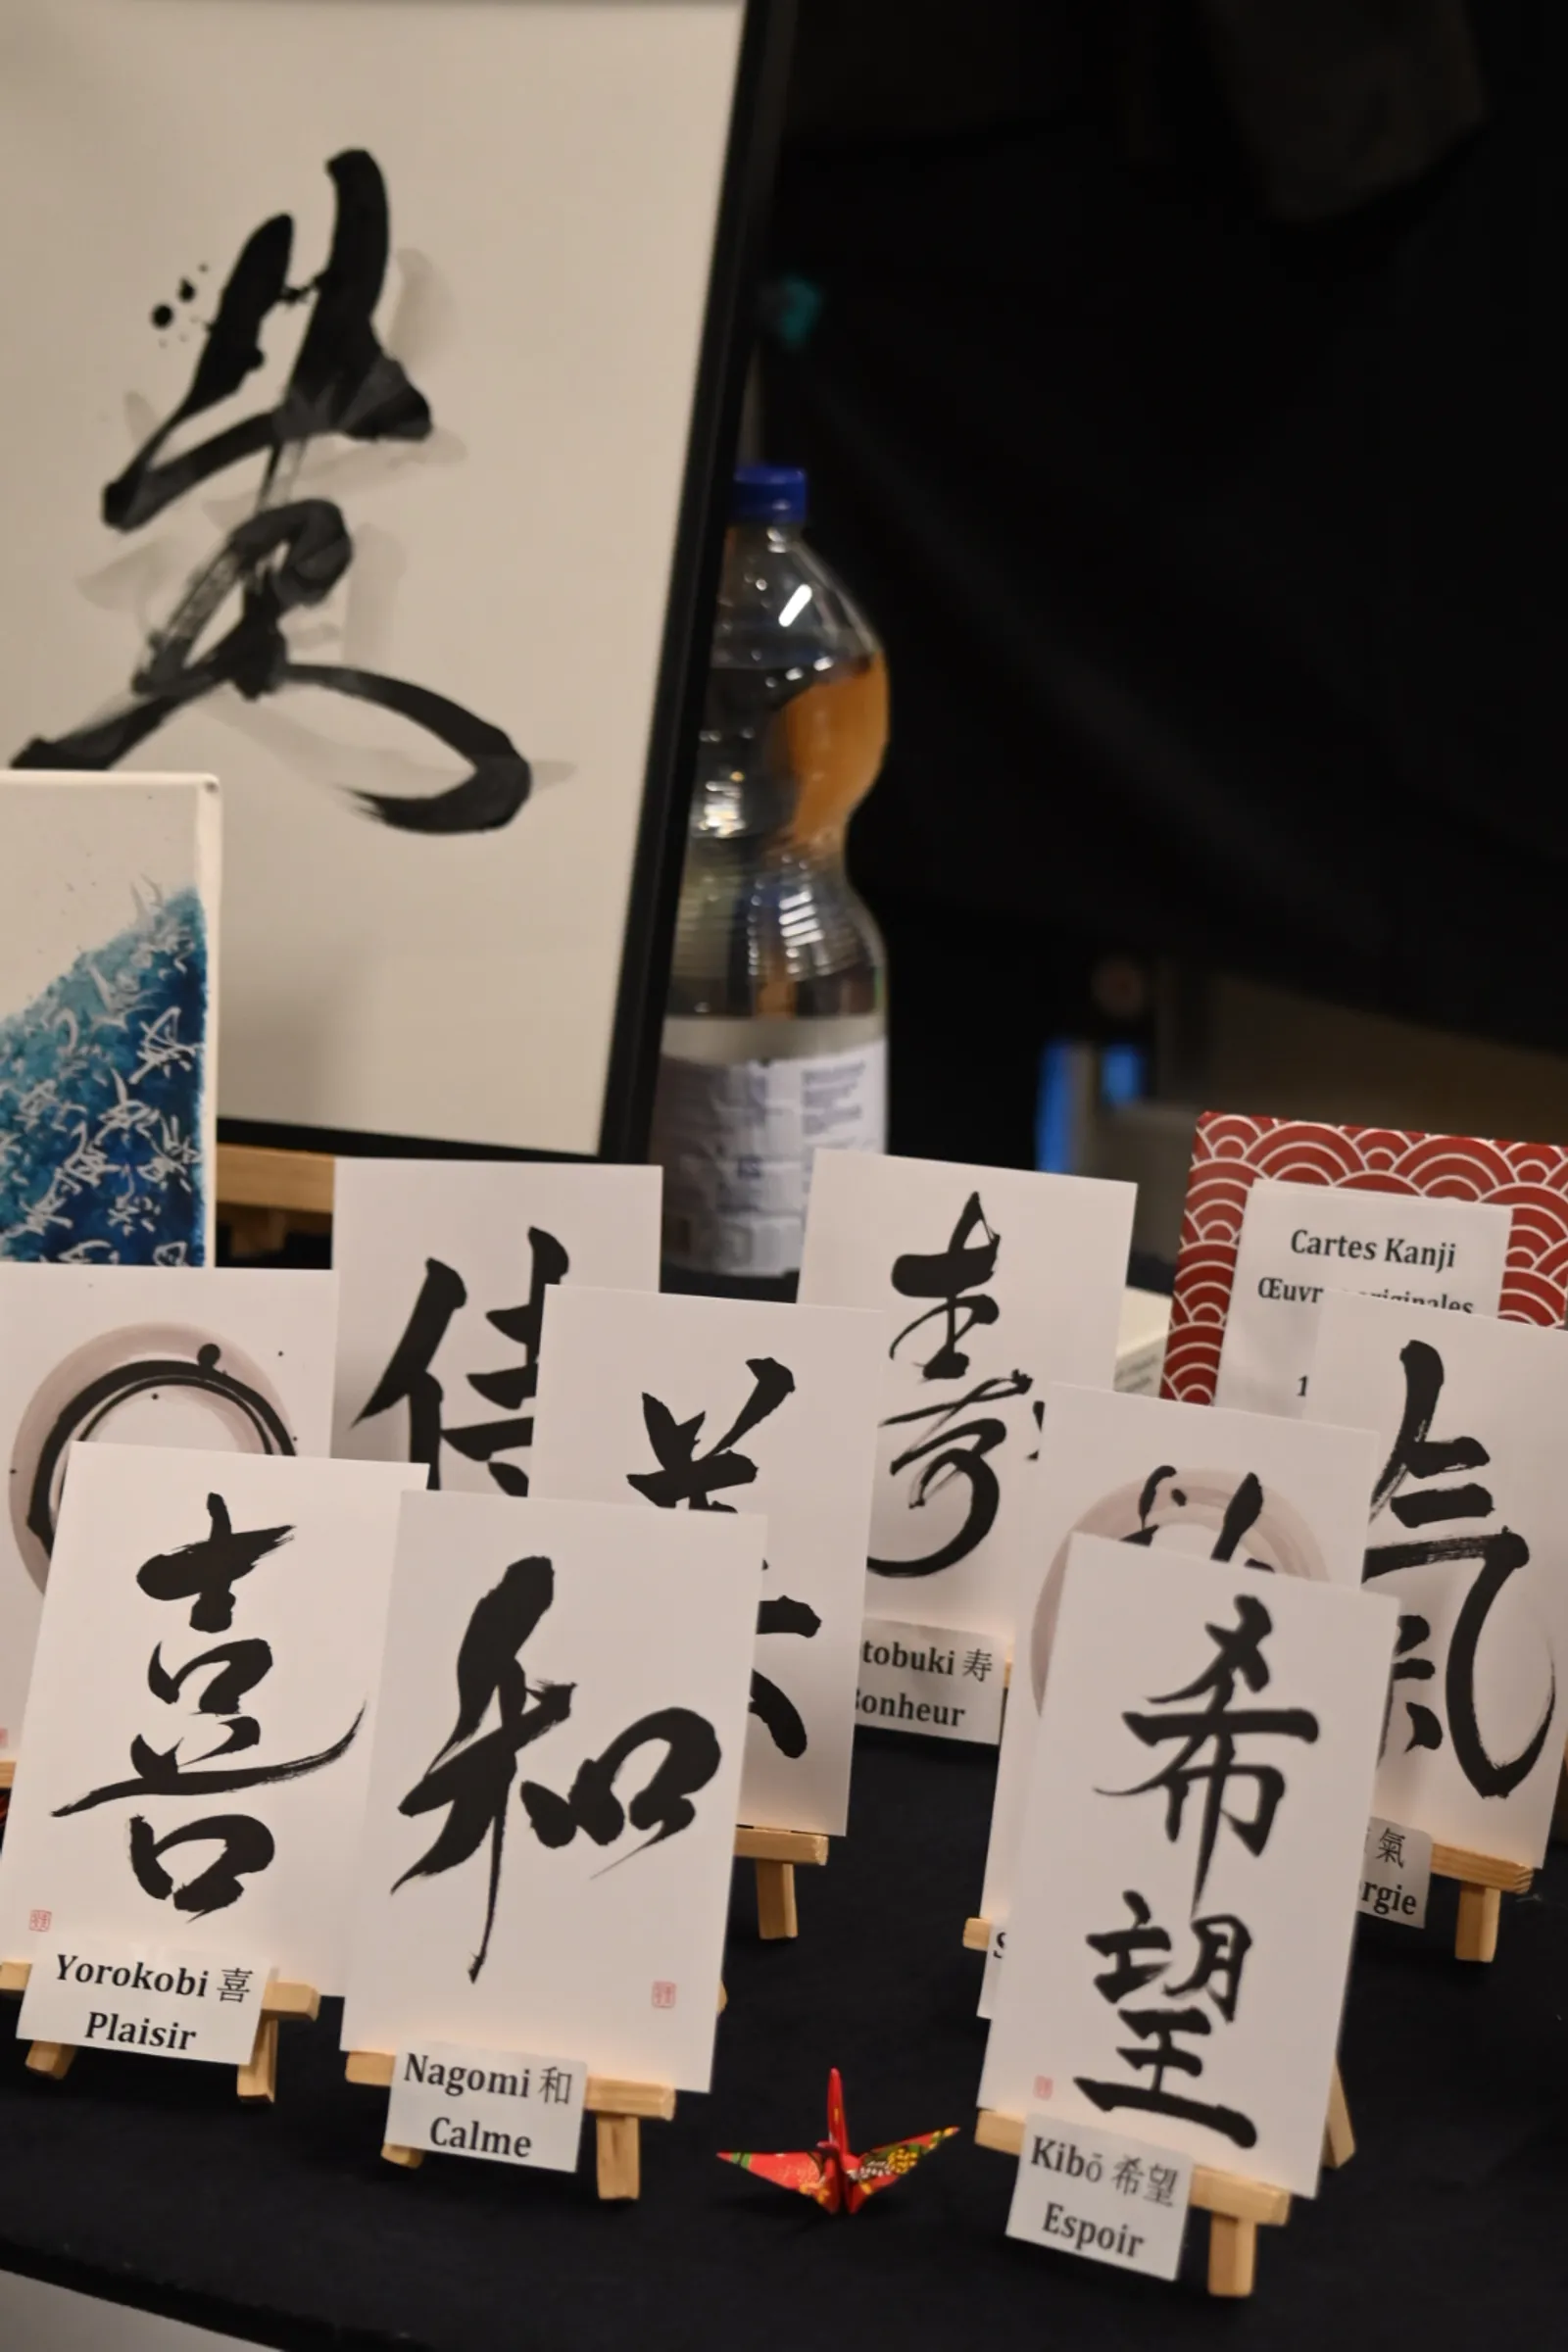 Cartes Kanji
Œuvr originales
1
侍
寿
tobuki 寿
Bonheur
氣
氣
rgie
喜
Yorokobi 喜
Plaisir
和
Nagomi 和
Calme
希
望
Kibō 希望
Espoir